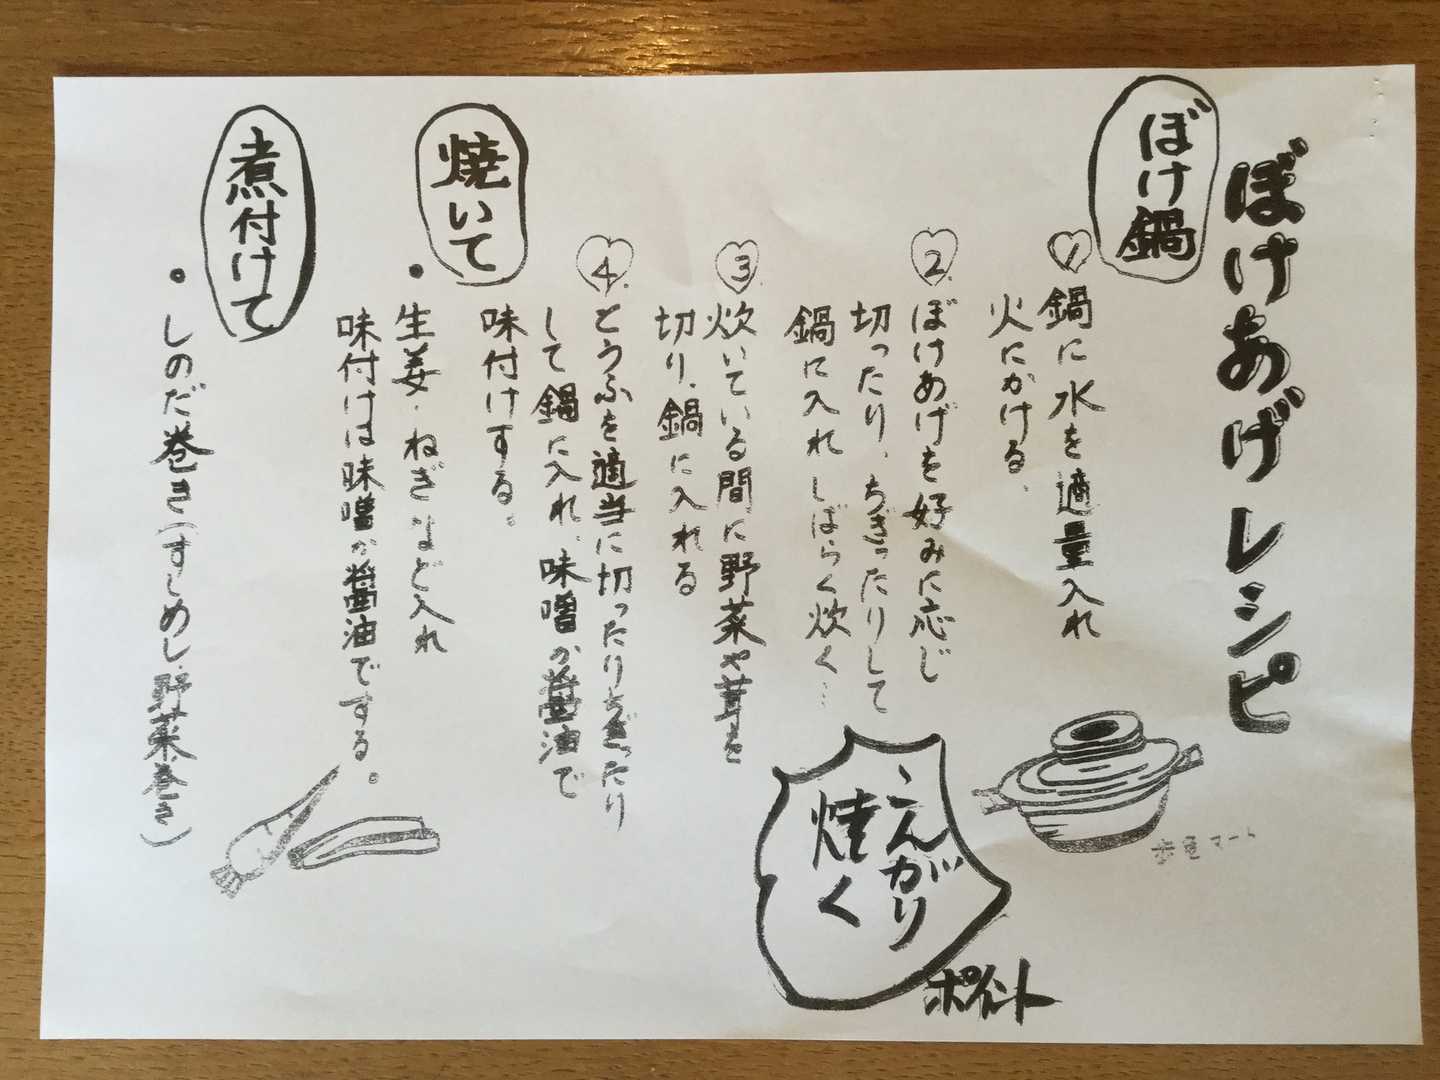 ぼけあげレシピ
ぼけ鍋
1 鍋に水を適量入れ
火にかける、
2. ぼけあげを好みに応じ
切ったり、ちぎったりして
鍋に入れしばらく炊く…
3. 炊いている間に野菜や茸を
切り、鍋に入れる
4. とうふを適当に切ったりちぎったり
して鍋に入れ、味噌か醤油で
味付けする。
こんがり
焼く
ポイント
焼いて
・生姜・ねぎなど入れ
味付けは味噌か醤油でする。
煮付けて
・しのだ巻き(すしめし・野菜巻き)